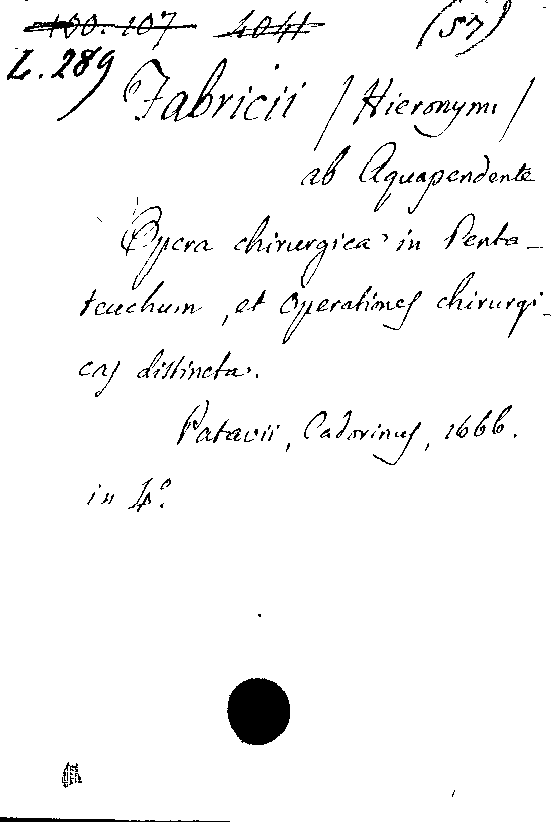 100.107 4041 (57)
L. 289
Fabricii / Hieronymi /
ab Aquapendente
Opera chirurgica in Penta-
teuchum, et operationes chirurgi-
cas distincta.
Patavii, Cadorinus, 1666.
in 4°.